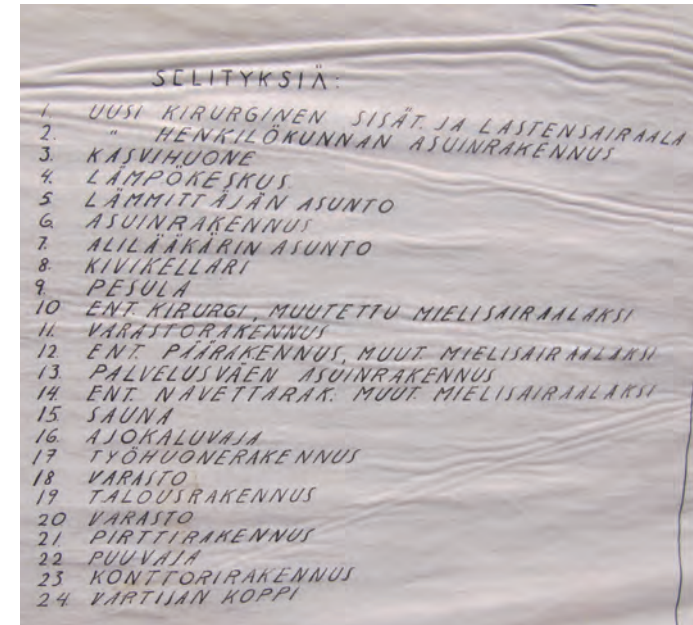 SELITYKSIÄ:
1. UUSI KIRURGINEN SISÄT. JA LASTENSAIRAALA
2. " HENKILÖKUNNAN ASUINRAKENNUS
3. KASVIHUONE
4. LÄMPÖKESKUS
5 LÄMMITTÄJÄN ASUNTO
6 ASUINRAKENNUS
7. ALILÄÄKÄRIN ASUNTO
8. KIVIKELLARI
9. PESULA
10 ENT. KIRURGI, MUUTETTU MIELISAIRAALAKSI
11. VARASTORAKENNUS
12 ENT. PÄÄRAKENNUS, MUUT. MIELISAIRAALAKSI
13. PALVELUSVÄEN ASUINRAKENNUS
14. ENT. NAVETTARAK. MUUT. MIELISAIRAALAKSI
15. SAUNA
16. AJOKALUVAJA
17 TYÖHUONERAKENNUS
18 VARASTO
19 TALOUSRAKENNUS
20 VARASTO
21. PIRTTIRAKENNUS
22 PUUVAJA
23 KONTTORIRAKENNUS
24 VARTIJAN KOPPI